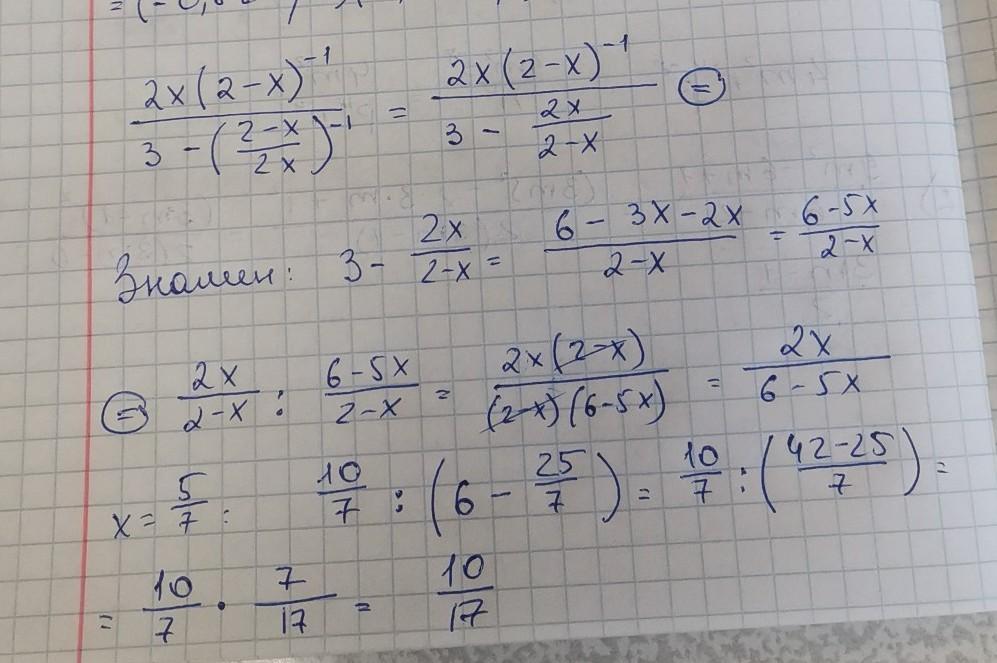 = (-0,
2x(2-x)⁻¹ / (3 - ((2-x)/(2x))⁻¹) = 2x(2-x)⁻¹ / (3 - 2x/(2-x)) ⊜
Знамен: 3 - 2x/(2-x) = (6 - 3x - 2x)/(2-x) = (6-5x)/(2-x)
⊜ 2x/(2-x) : (6-5x)/(2-x) = 2x(2-x)/((2-x)(6-5x)) = 2x/(6-5x)
x = 5/7 : 10/7 : (6 - 25/7) = 10/7 : ((42-25)/7) =
= 10/7 · 7/17 = 10/17